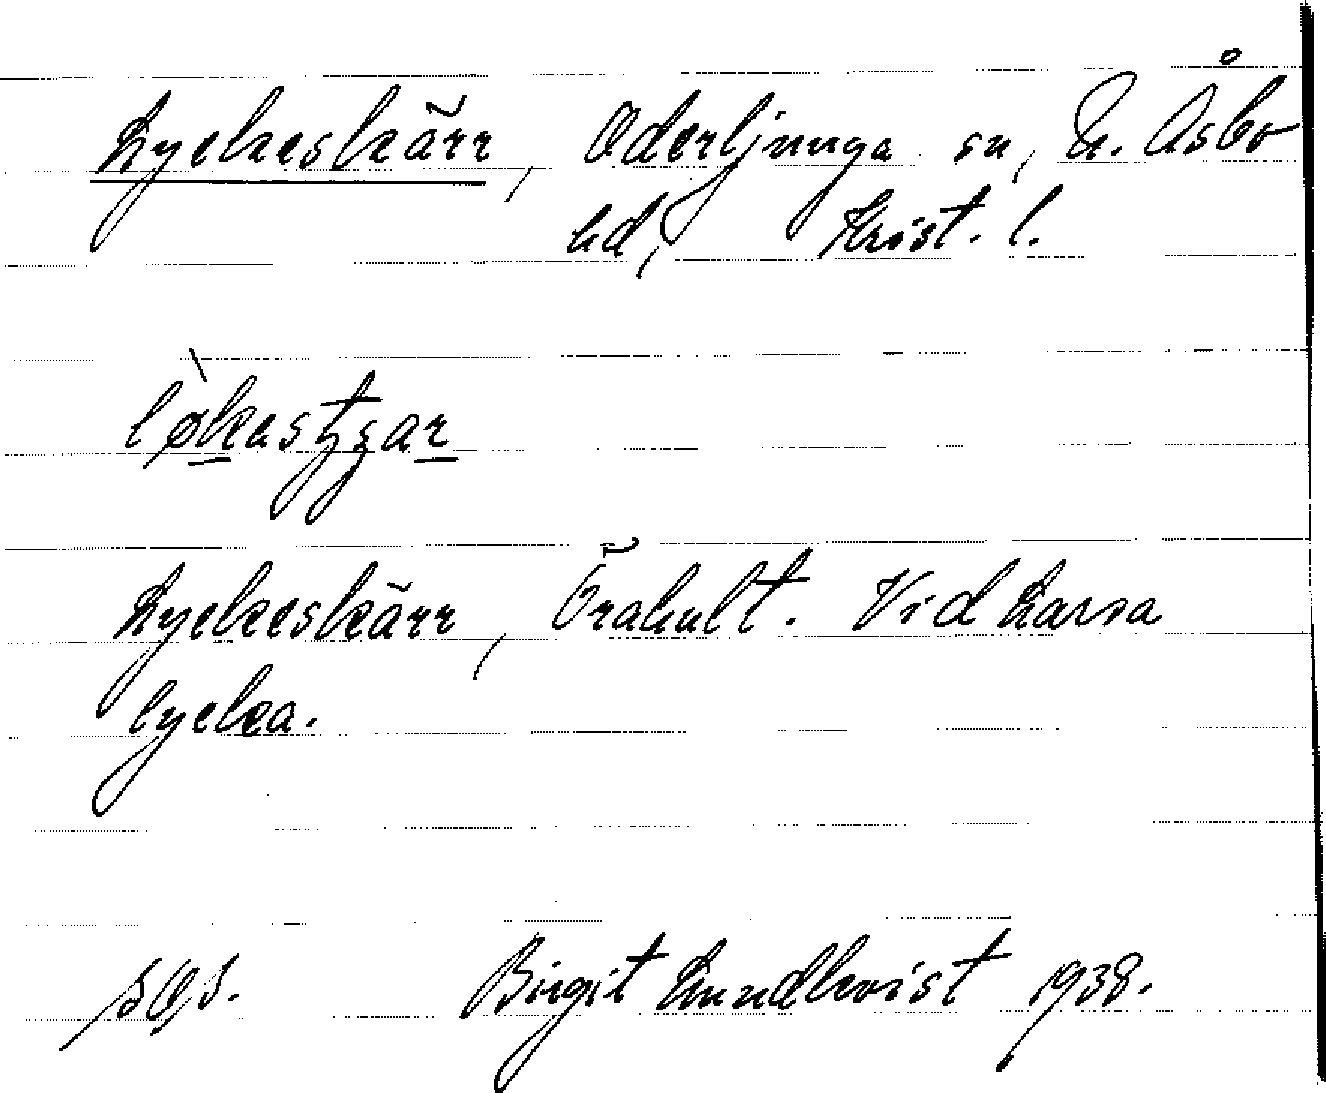 Lyckeskärr, Oderljunga sn, N. Åsbo
hd, Krist. l.
Lyckeskärr, Örahult. Vid Larsa
lycka.
Birgit Lundkvist 1938.